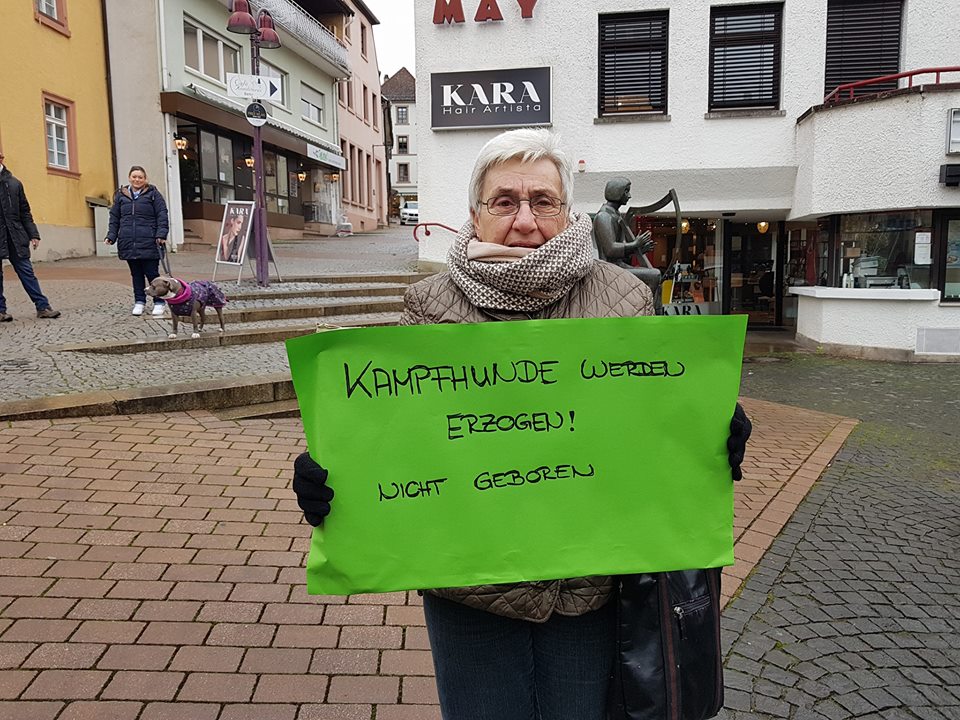 MAY
KARA
Hair Artista
KARA
KAMPFHUNDE WERDEN
ERZOGEN!
NICHT GEBOREN
KARA